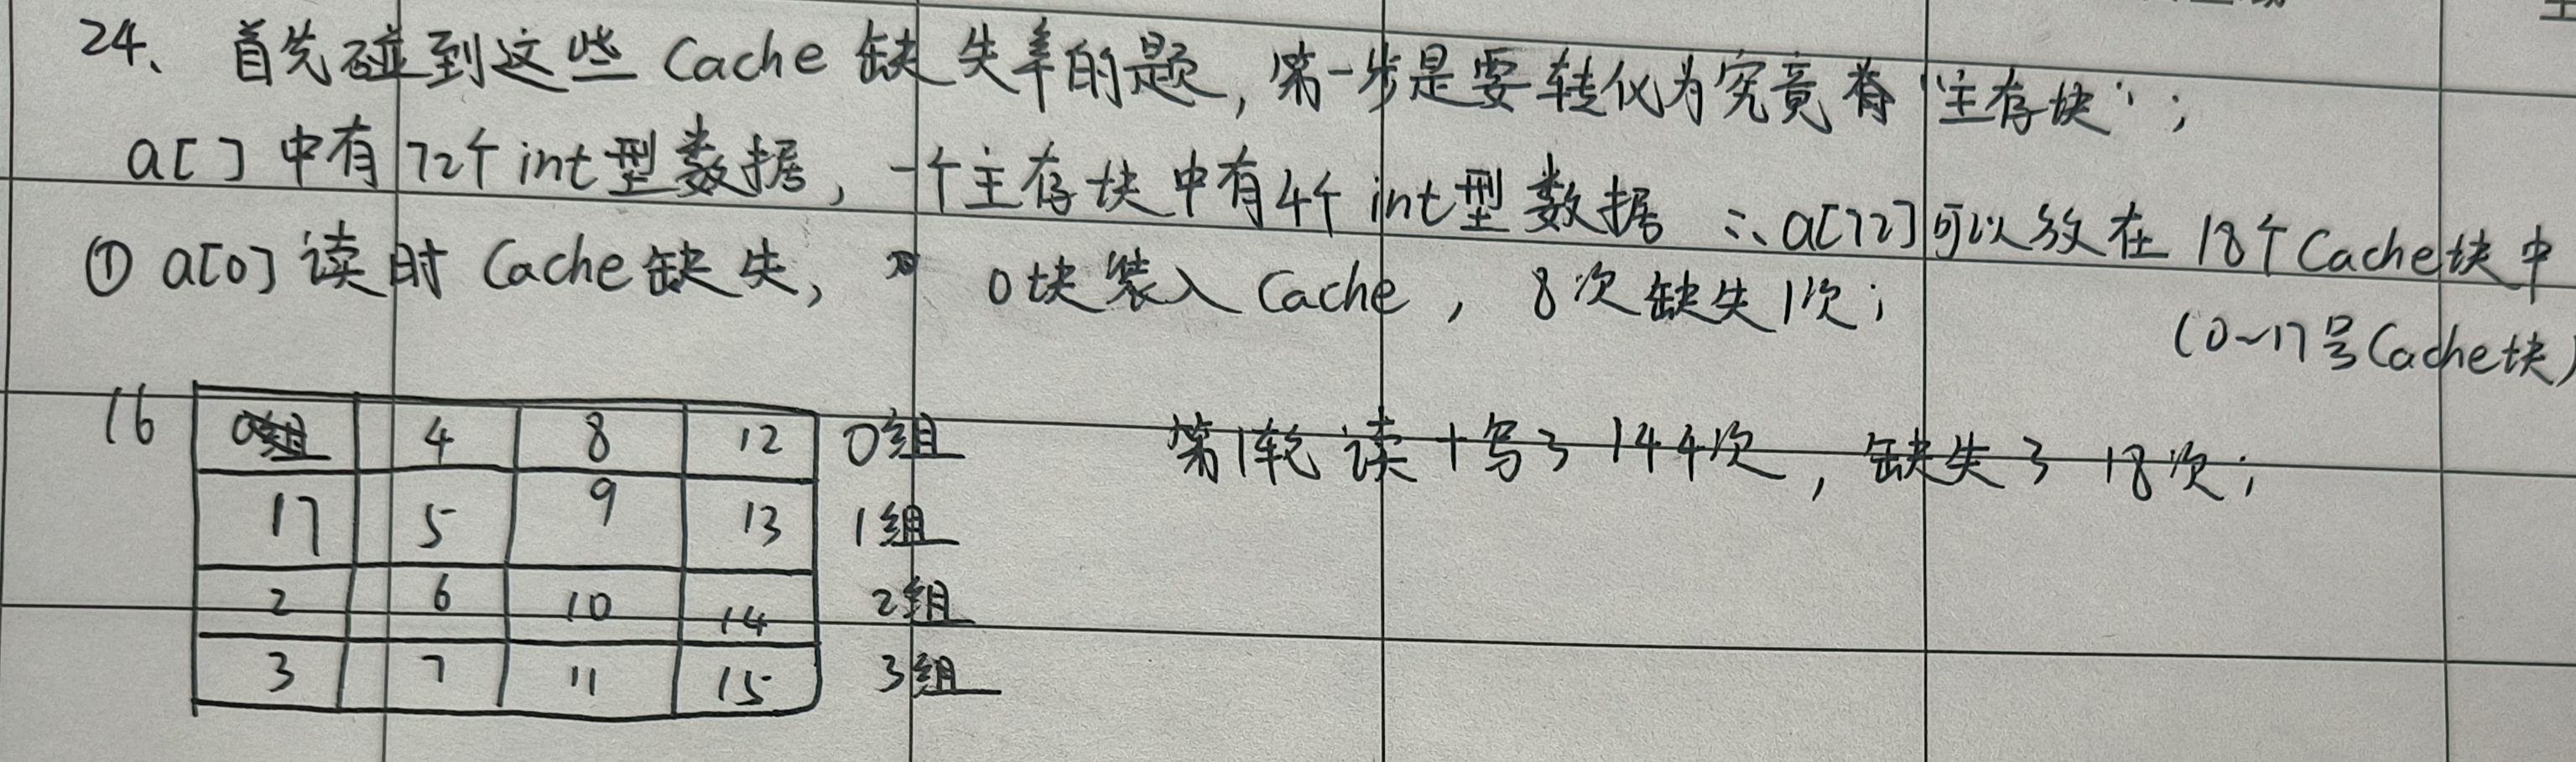 24、首先碰到这些 Cache 缺失率的题，第一步是要转化为究竟有“主存块”；
a[ ] 中有72个int型数据，一个主存块中有4个int型数据 ∴a[72]可以放在18个Cache块中
(0~17号Cache块)
① a[0]读时Cache缺失， 0块装入Cache，8次缺失1次；
16 4 8 12 0组
17 5 9 13 1组
2 6 10 14 2组
3 7 11 15 3组
第1轮读+写了144次，缺失了18次；